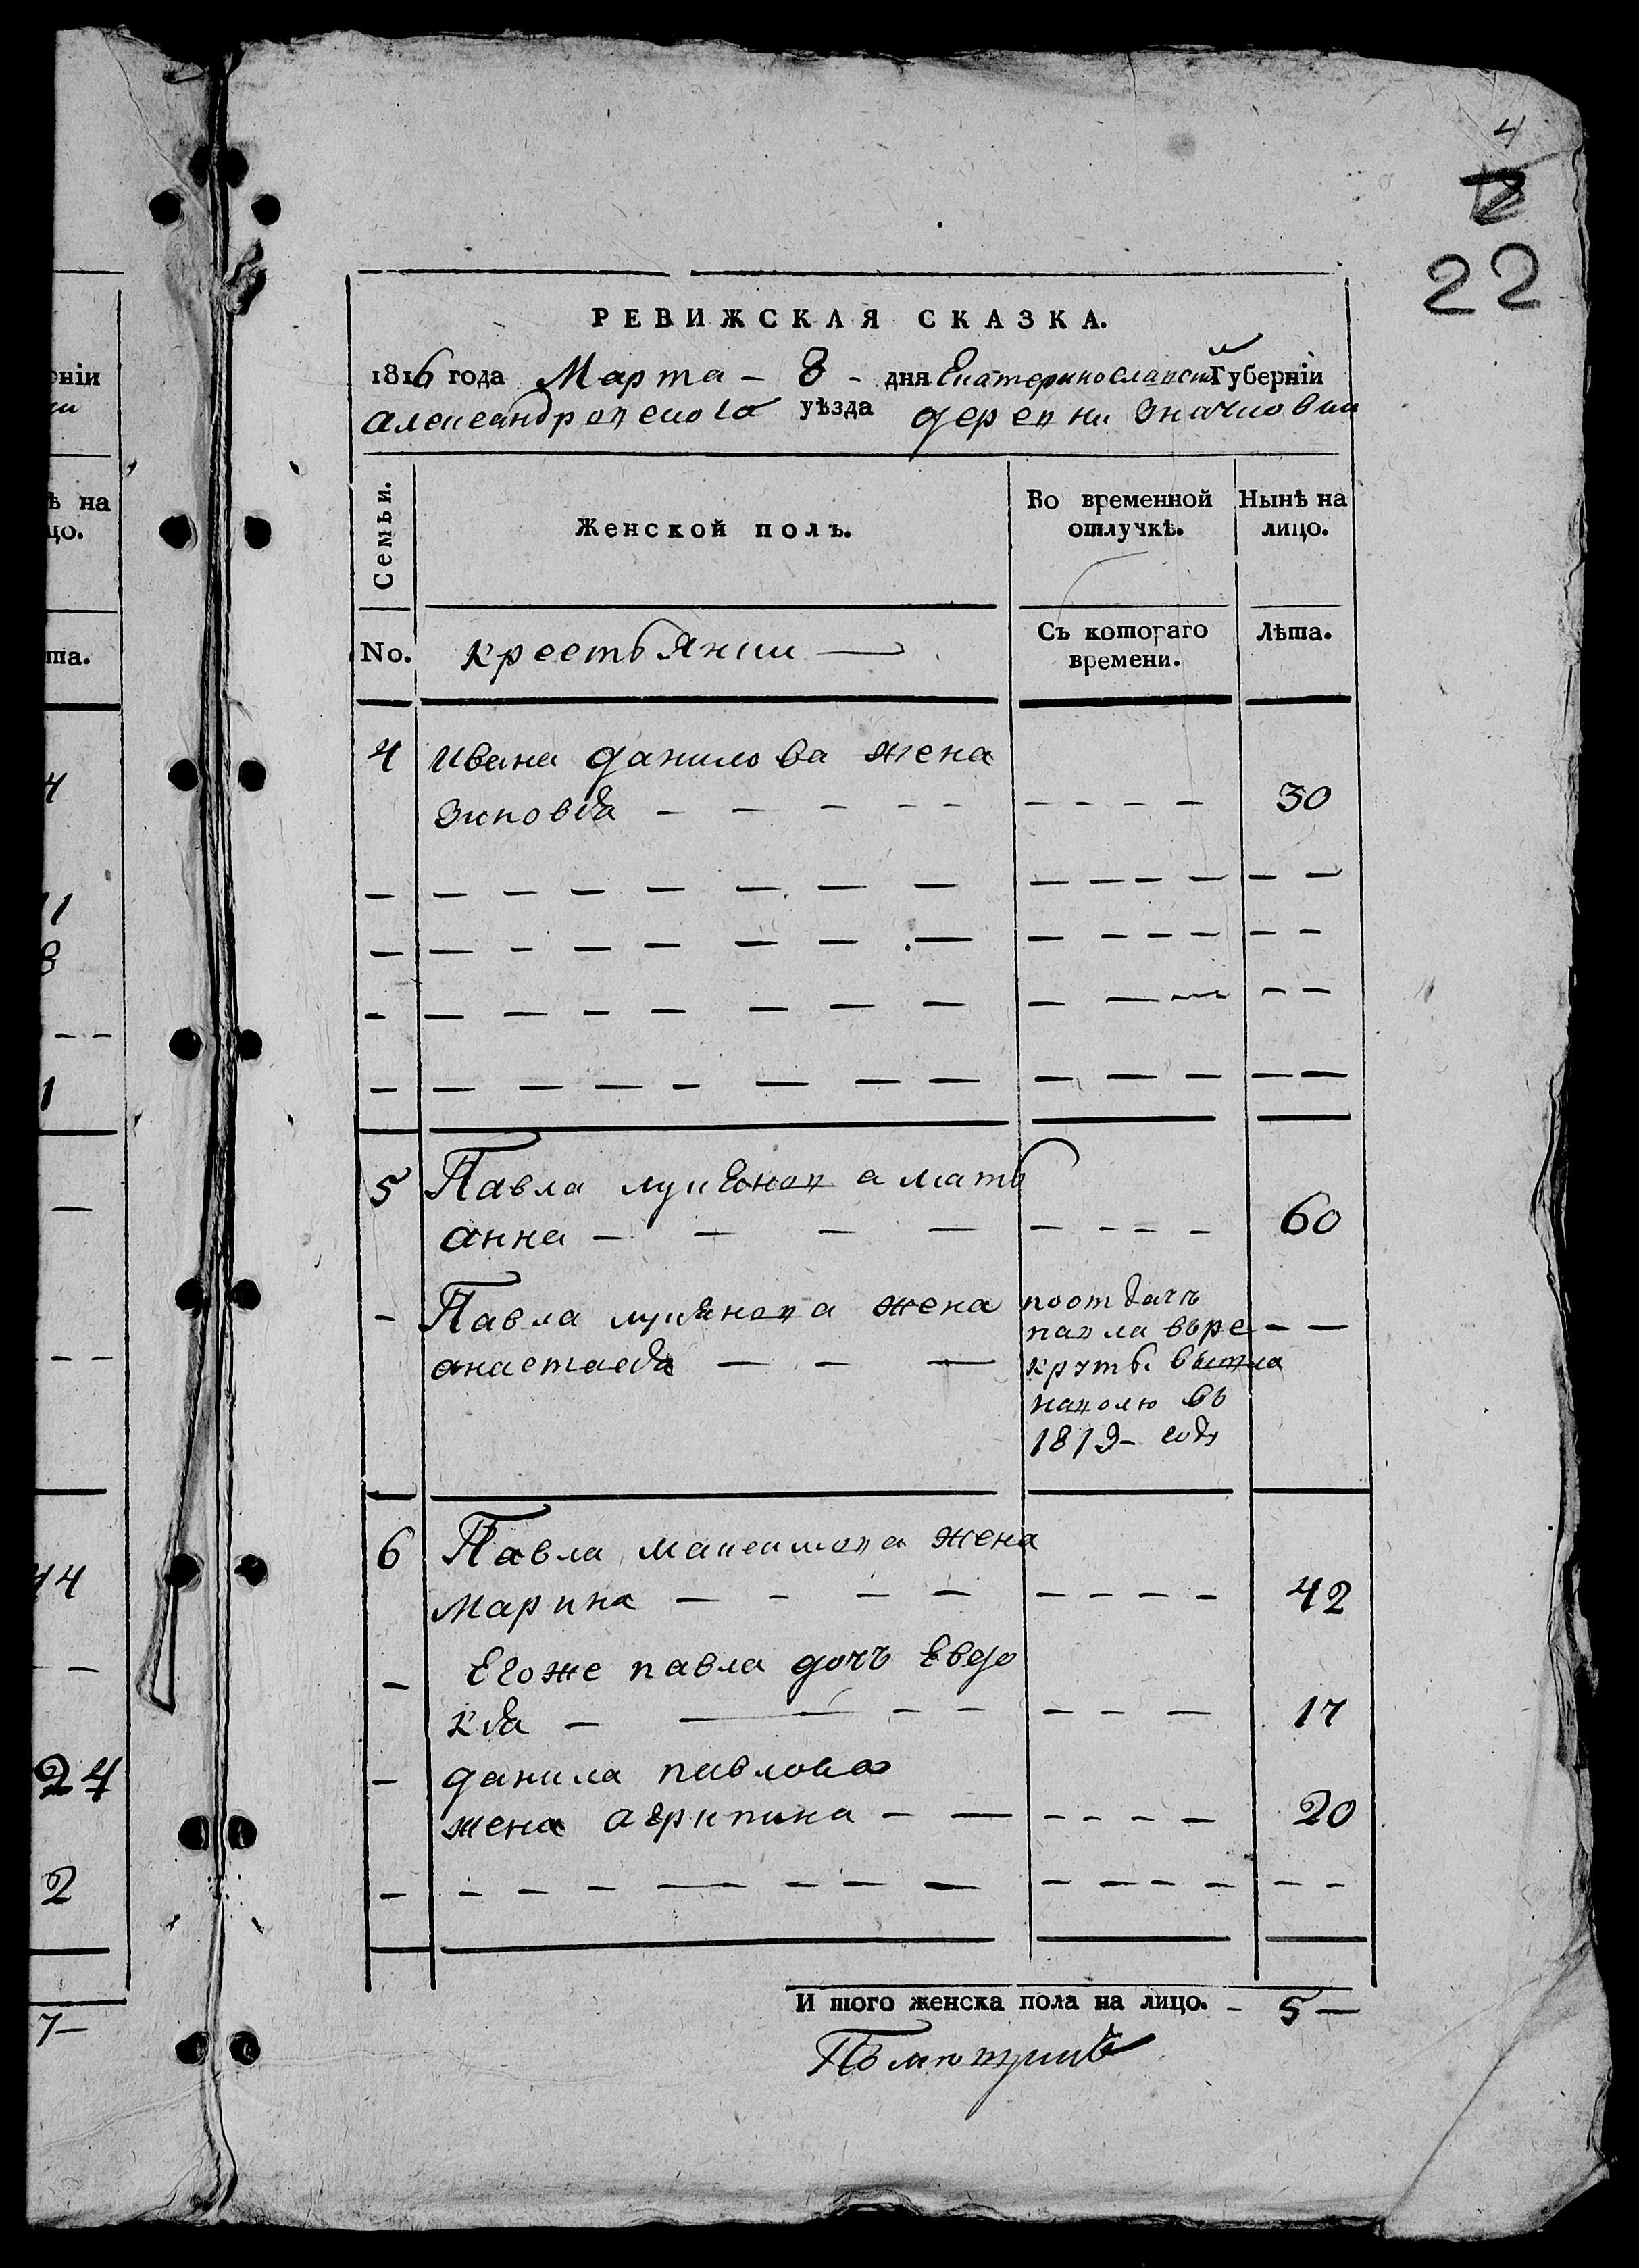 4
22
РЕВИЖСКАЯ СКАЗКА.
1816 года Марта – 8 – дня Екатеринославской Губерніи
Александровскаго уѣзда деревни Значковки
Семьи.
Женской полъ.
Во временной отлучкѣ.
Нынѣ на лицо.
No.
крестьянки
Съ котораго времени.
Лѣта.
4 Ивана данилова жена
Зиновія – – – – – – – – – 30
5 Павла лукіянова мать
анна – – – – – – – – 60
– Павла лукіянова жена
анастасія – – –
поотдачѣ
павла въре
круты вышла
наволю въ
1813 – году
– –
6 Павла максимова жена
марина – – – – – – – – 42
– Егоже павла дочь Евдо
кія – – – – – – – – 17
– данила павлова
жена агрипина – – – – – – 20
И того женска пола на лицо. – 5 –
ніи
ѣ на
цо.
та.
4
11
8
– –
1
–
– –
14
–
24
2
7 –